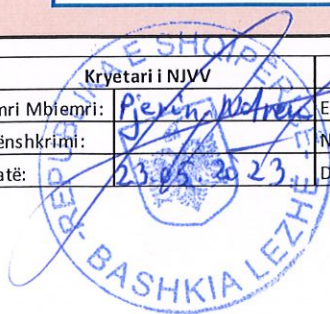 Kryetari i NJVV
mri Mbiemri: Pjerin Ndreu E
ënshkrimi: N
atë: 23.05.2023 D
REPUBLIKA E SHQIPËRISË
BASHKIA LEZHË